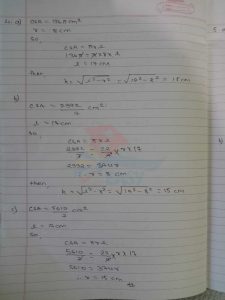 4. a) CSA = 136π cm²
r = 8 cm
So,
CSA = πrl
136π = π × 8 × l
l = 17 cm
then,
h = √l² - r² = √17² - 8² = 15 cm
b) CSA = 2992/7 cm²
l = 17 cm
So,
CSA = πrl
2992/7 = 22/7 × r × 17
2992 = 374r
∴ r = 8 cm
then,
h = √l² - r² = √17² - 8² = 15 cm
c) CSA = 5610/7 cm²
l = 17 cm
So,
CSA = πrl
5610/7 = 22/7 × r × 17
5610 = 374r
∴ r = 15 cm